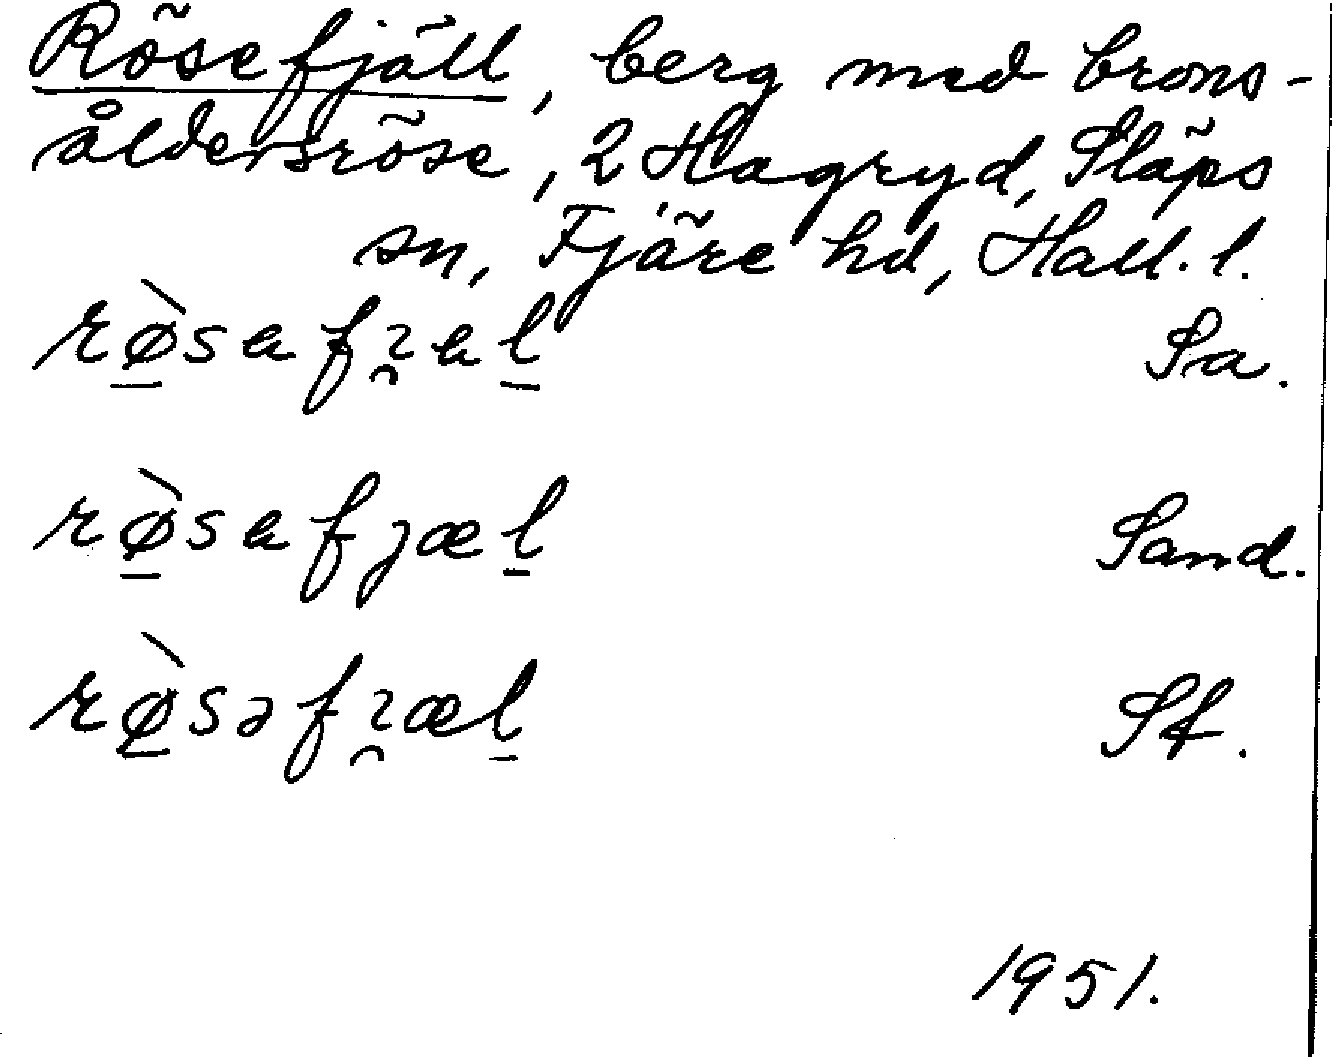 Rösefjäll, berg med brons-
åldersröse, 2 Hagryd, Släps
sn, Fjäre hd, Hall. l.
rø̱̀safɿ̯al̲ Sa.
rø̱̀safjæl̲ Sand.
rø̱̀səfɿ̯æl̲ Sf.
1951.